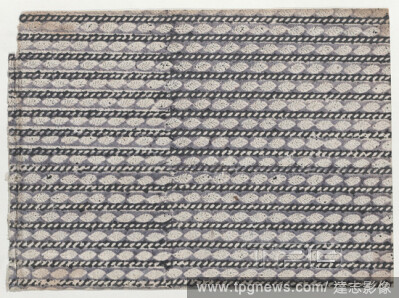 www.tpgnews.com/達志影像